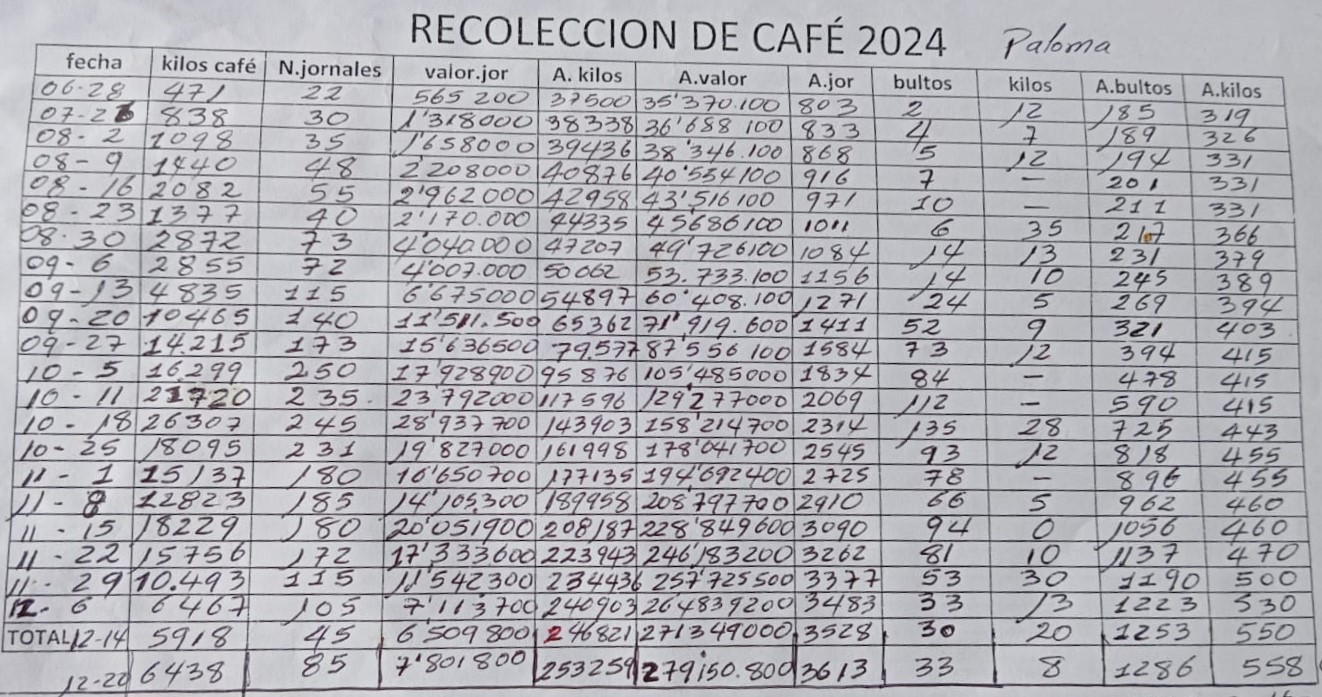 RECOLECCION DE CAFÉ 2024 Paloma
fecha kilos café N.jornales valor.jor A. kilos A.valor A.jor bultos kilos A.bultos A.kilos
06-28 471 22 565 200 37500 35'370.100 803 2 12 185 319
07-26 838 30 1'318000 38338 36'688 100 833 4 7 189 326
08-2 1098 35 1'658000 39436 38'346.100 868 5 12 194 331
08-9 1440 48 2'208000 40876 40'554100 916 7 — 201 331
08-16 2082 55 2'962000 42958 43'516100 971 10 — 211 331
08-23 1377 40 2'170.000 44335 45'686100 1011 6 35 217 366
08-30 2872 73 4'040.000 47207 49'726100 1084 14 13 231 379
09-6 2855 72 4'007.000 50062 53.733.100 1156 14 10 245 389
09-13 4835 115 6'675000 54897 60'408.100 1271 24 5 269 394
09-20 10465 140 11'511.500 65362 71'919.600 1411 52 9 321 403
09-27 14.215 173 15'636500 79.577 87'556 100 1584 73 12 394 415
10-5 16.299 250 17'928900 95876 105'485000 1834 84 — 478 415
10-11 21720 235 23'792000 117596 129'277000 2069 112 — 590 415
10-18 26307 245 28'937700 143903 158'214700 2314 135 28 725 443
10-25 18095 231 19'827000 161998 178'041700 2545 93 12 818 455
11-1 15137 180 16'650700 177135 194'692400 2725 78 — 896 455
11-8 12823 185 14'105.300 189958 208'797700 2910 66 5 962 460
11-15 18229 180 20'051900 208187 228'849600 3090 94 0 1056 460
11-22 15756 172 17'333600 223943 246'183200 3262 81 10 1137 470
11-29 10.493 115 11'542300 234436 257'725500 3377 53 30 1190 500
12-6 6467 105 7'113700 240903 264839200 3483 33 13 1223 530
TOTAL 12-14 5918 45 6 509 800 246821 271349000 3528 30 20 1253 550
12-20 6438 85 7'801800 253259 279150.800 3613 33 8 1286 558